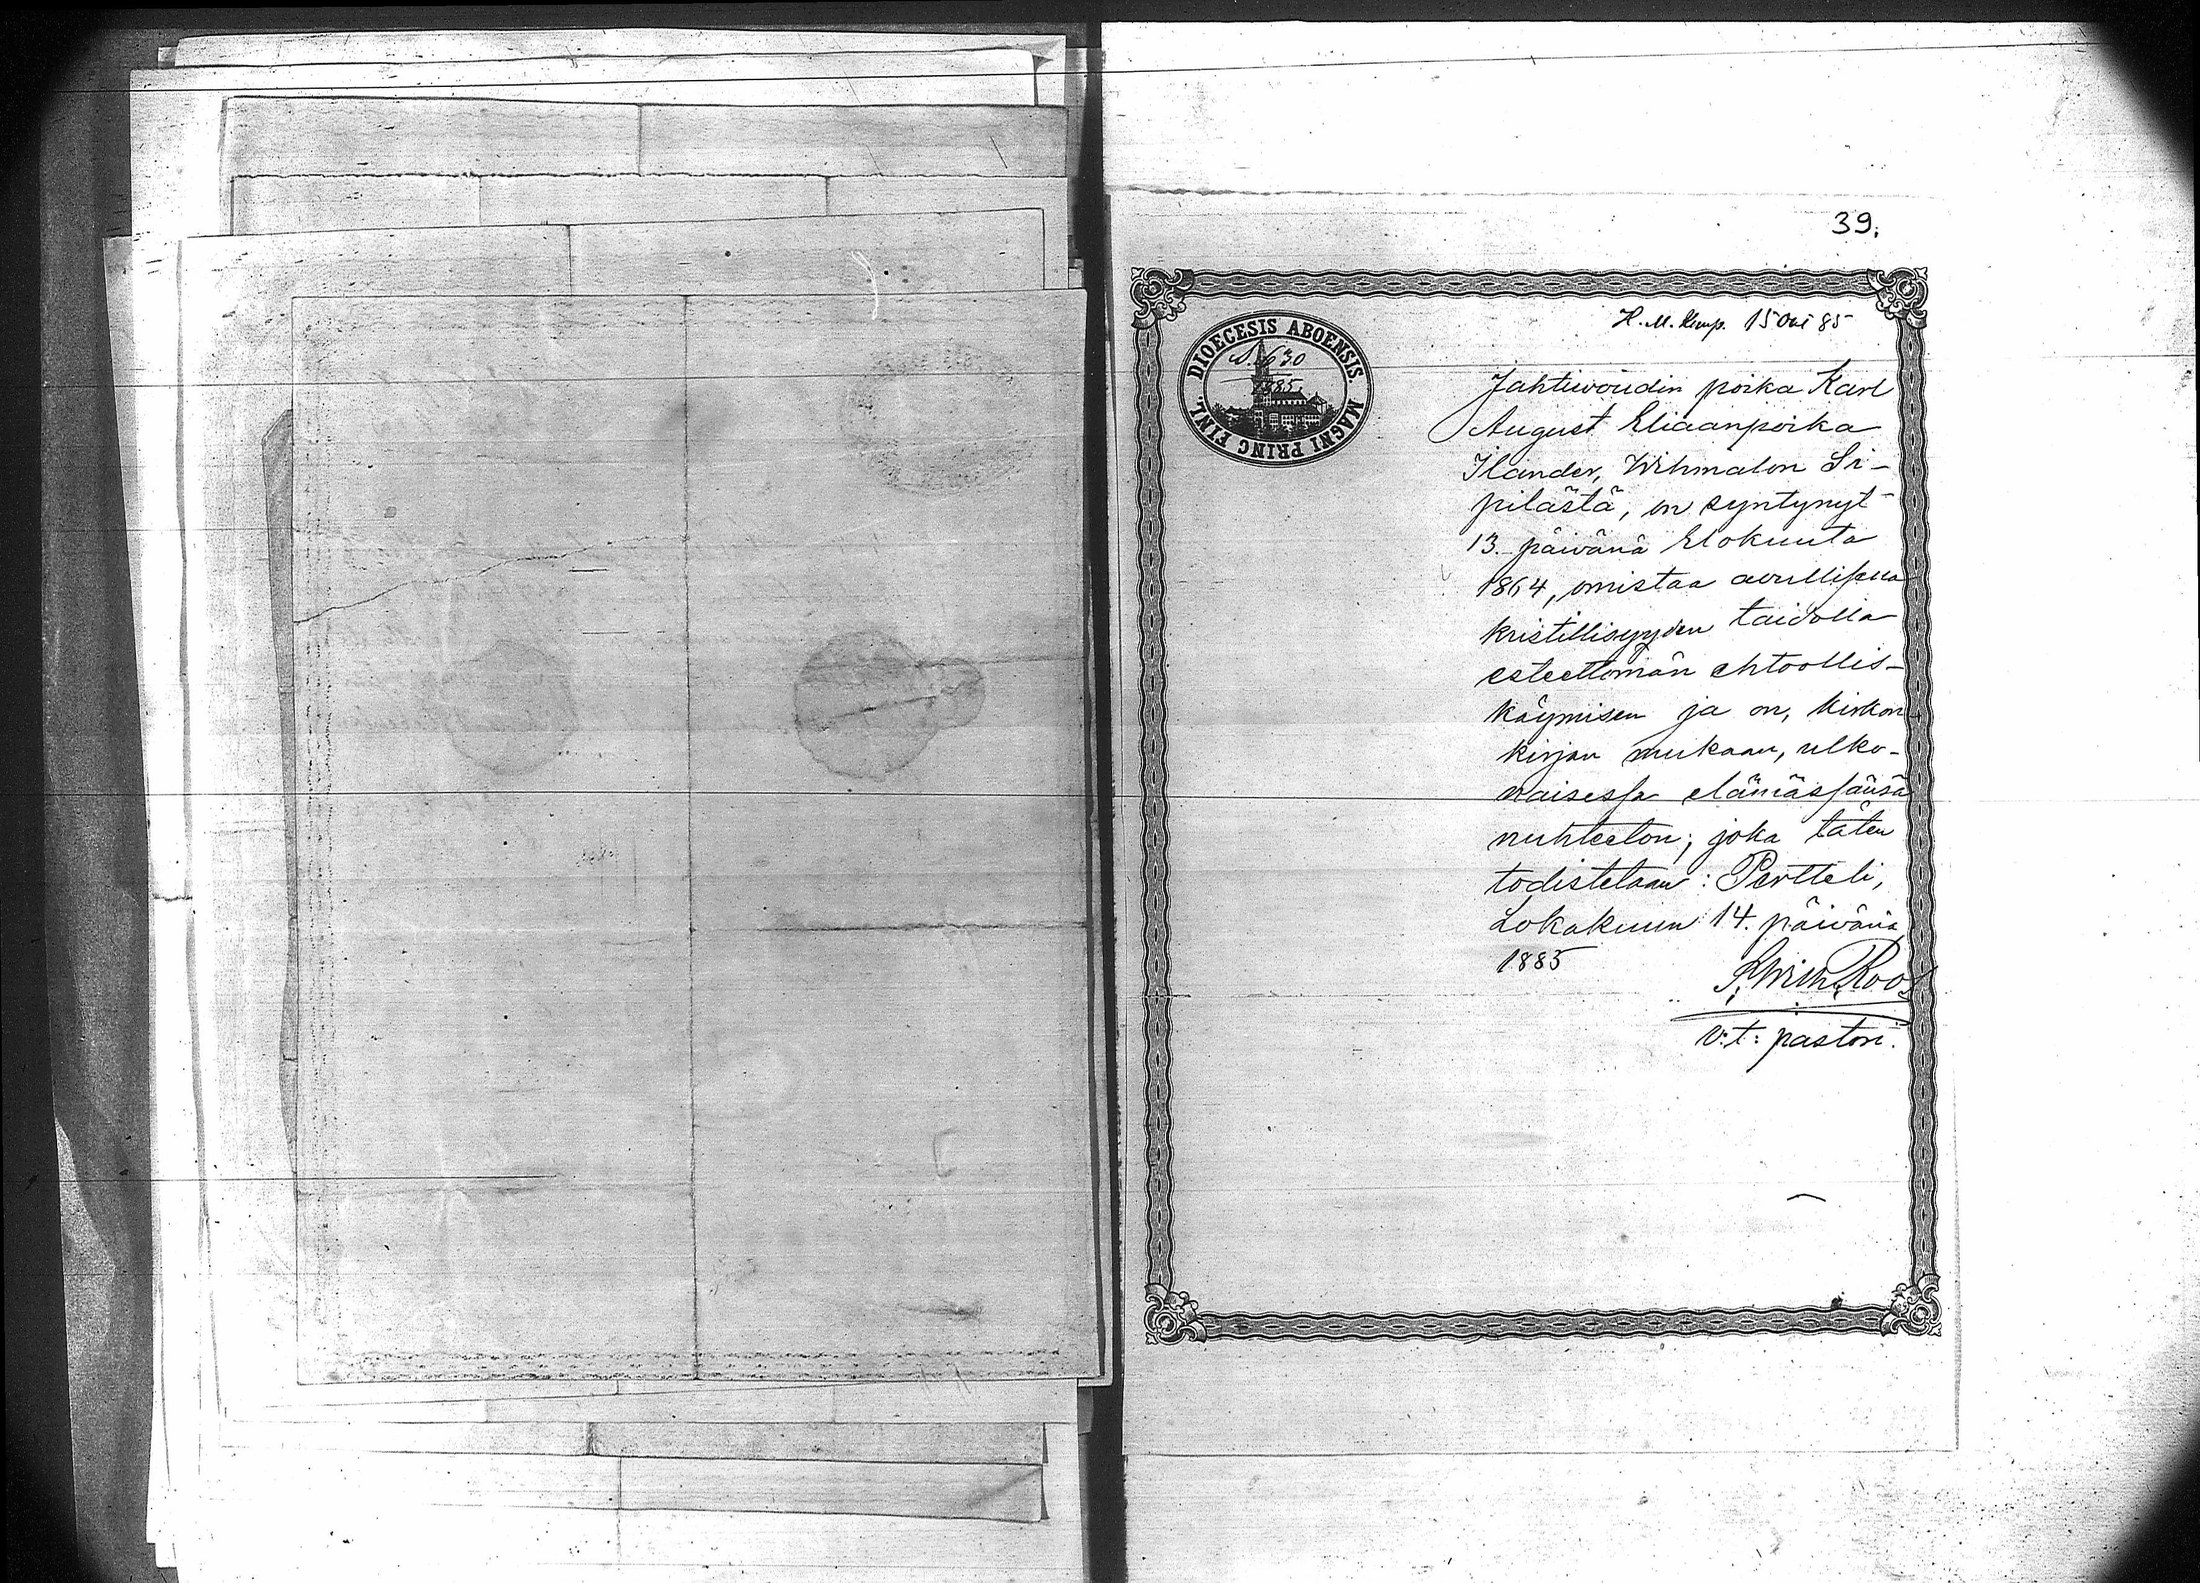 39.
H. M. Kmp. 15 Okt 85
DIOECESIS ABOENSIS. MAGNI PRINC FINL.
S. 630
1885.
Jahtiwoudin poika Karl
August Eliaanpoika
Ilander, Wihmalon Si-
pilästä, on syntynyt
13. päivänä Elokuuta
1864, omistaa awullisella
kristillisyyden taidolla
esteettömän ehtoollis-
käymisen ja on, kirkon
kirjan mukaan, ulko-
naisessa elämässänsä
nuhteeton; joka täten
todistetaan: Pertteli,
Lokakuun 14. päivänä
1885
Roos
v:t: pastori.